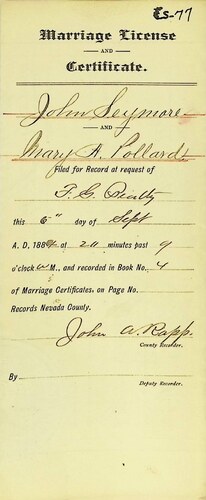 Es-77
Marriage License
AND
Certificate.
John Seymore
AND
Mary A. Pollard
Filed for Record at request of
F. G.
this 6" day of Sept
A. D., 188 at 20 minutes past 9
o'clock M., and recorded in Book No. 4
of Marriage Certificates, on Page No.
Records Nevada County.
John A. Rapp.
County Recorder.
By
Deputy Recorder.